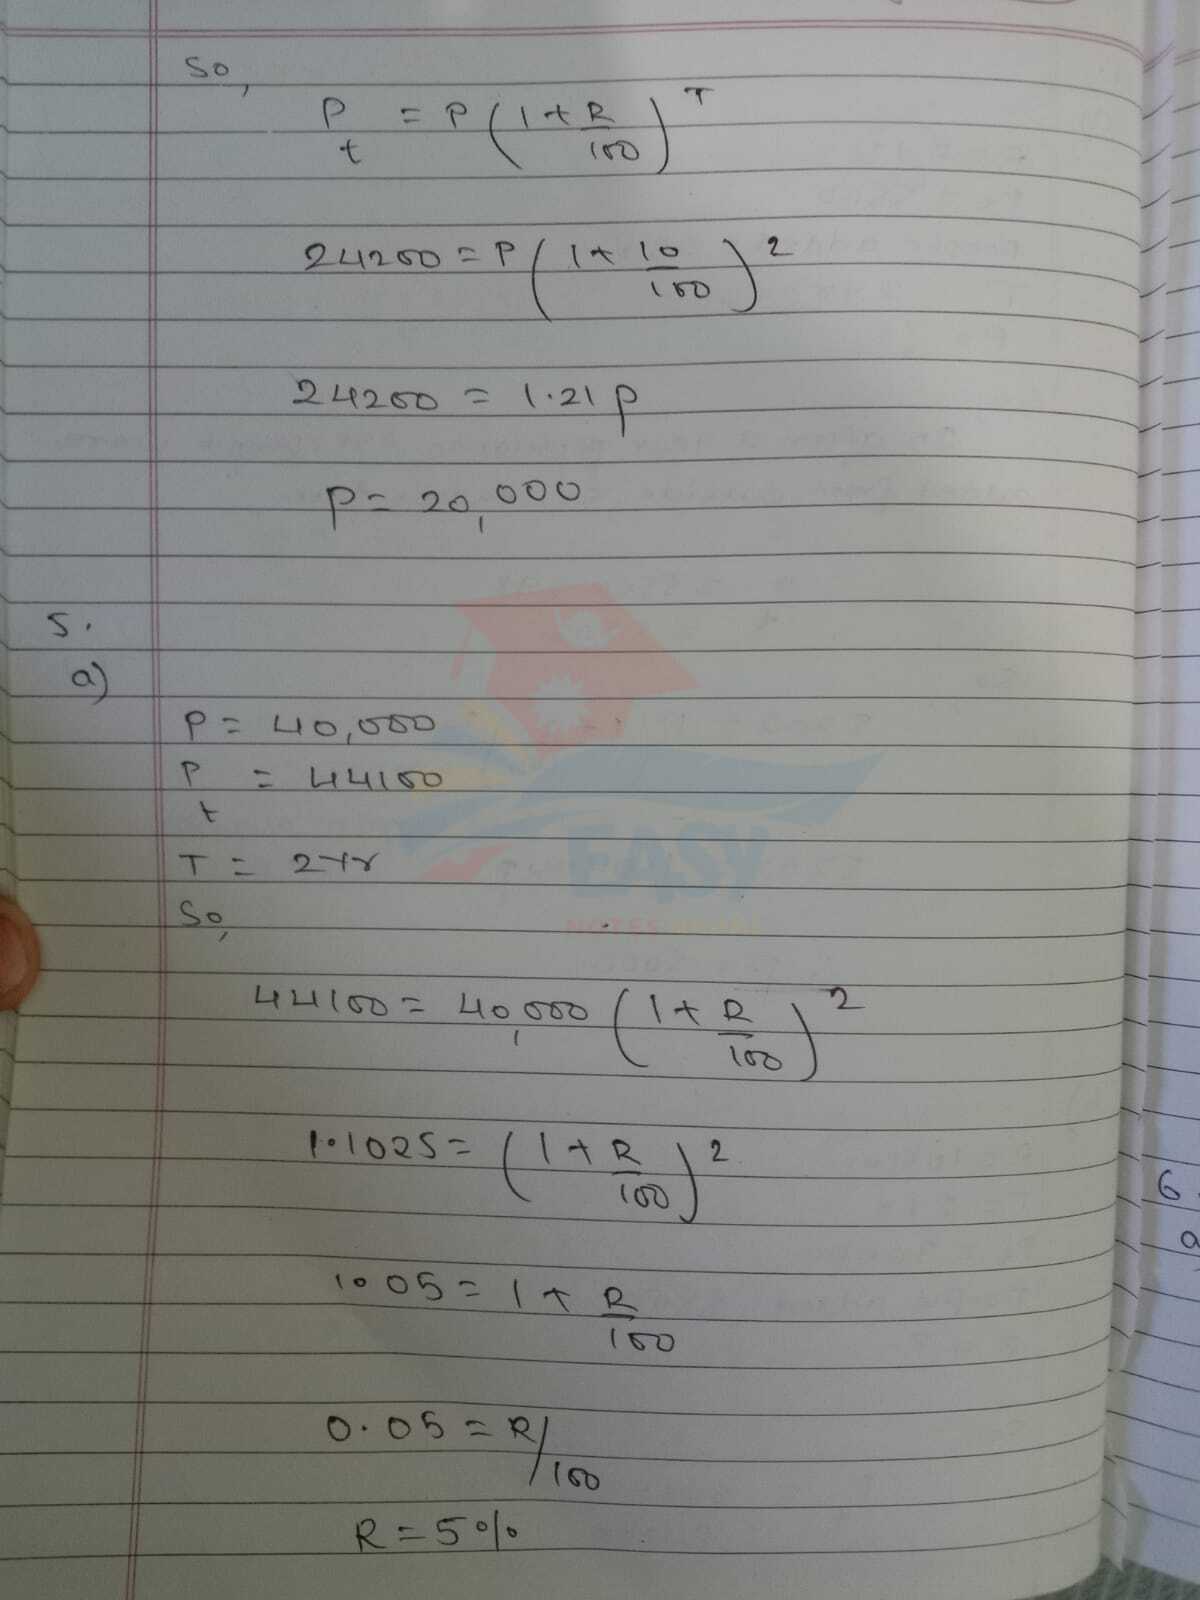 So,
P = P ( 1 + R ) T
t 100
24200 = P ( 1 + 10 ) 2
100
24200 = 1.21 P
P = 20,000
5.
a)
P = 40,000
P = 44100
t
T = 2 Yr
So,
44100 = 40,000 ( 1 + R ) 2
100
1.1025 = ( 1 + R ) 2
100
1.05 = 1 + R
100
0.05 = R/
100
R = 5%
6.
a
EASY
NOTES